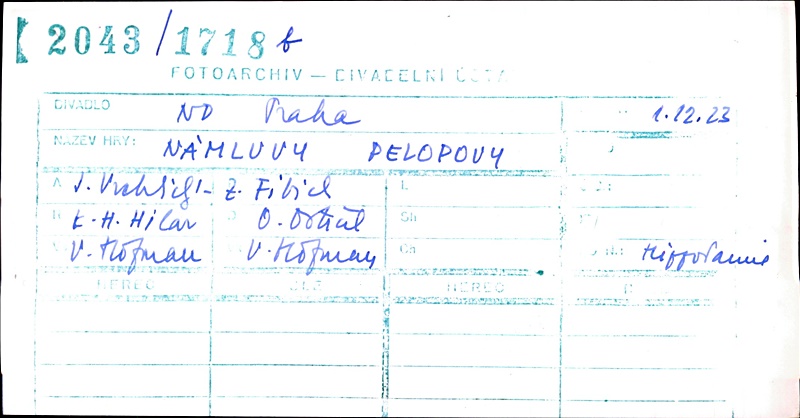 2043/1718 b
FOTOARCHIV — DIVADELNÍ
DIVADLO ND Praha 1.12.23
NÁZEV HRY: NÁMLUVY PELOPOVY
A J. Vrchlický - Z. Fibich L
K. H. Hilar O. Ostrčil Sh
V. Hofman V. Hofman Hippodamie
HEREC HEREC